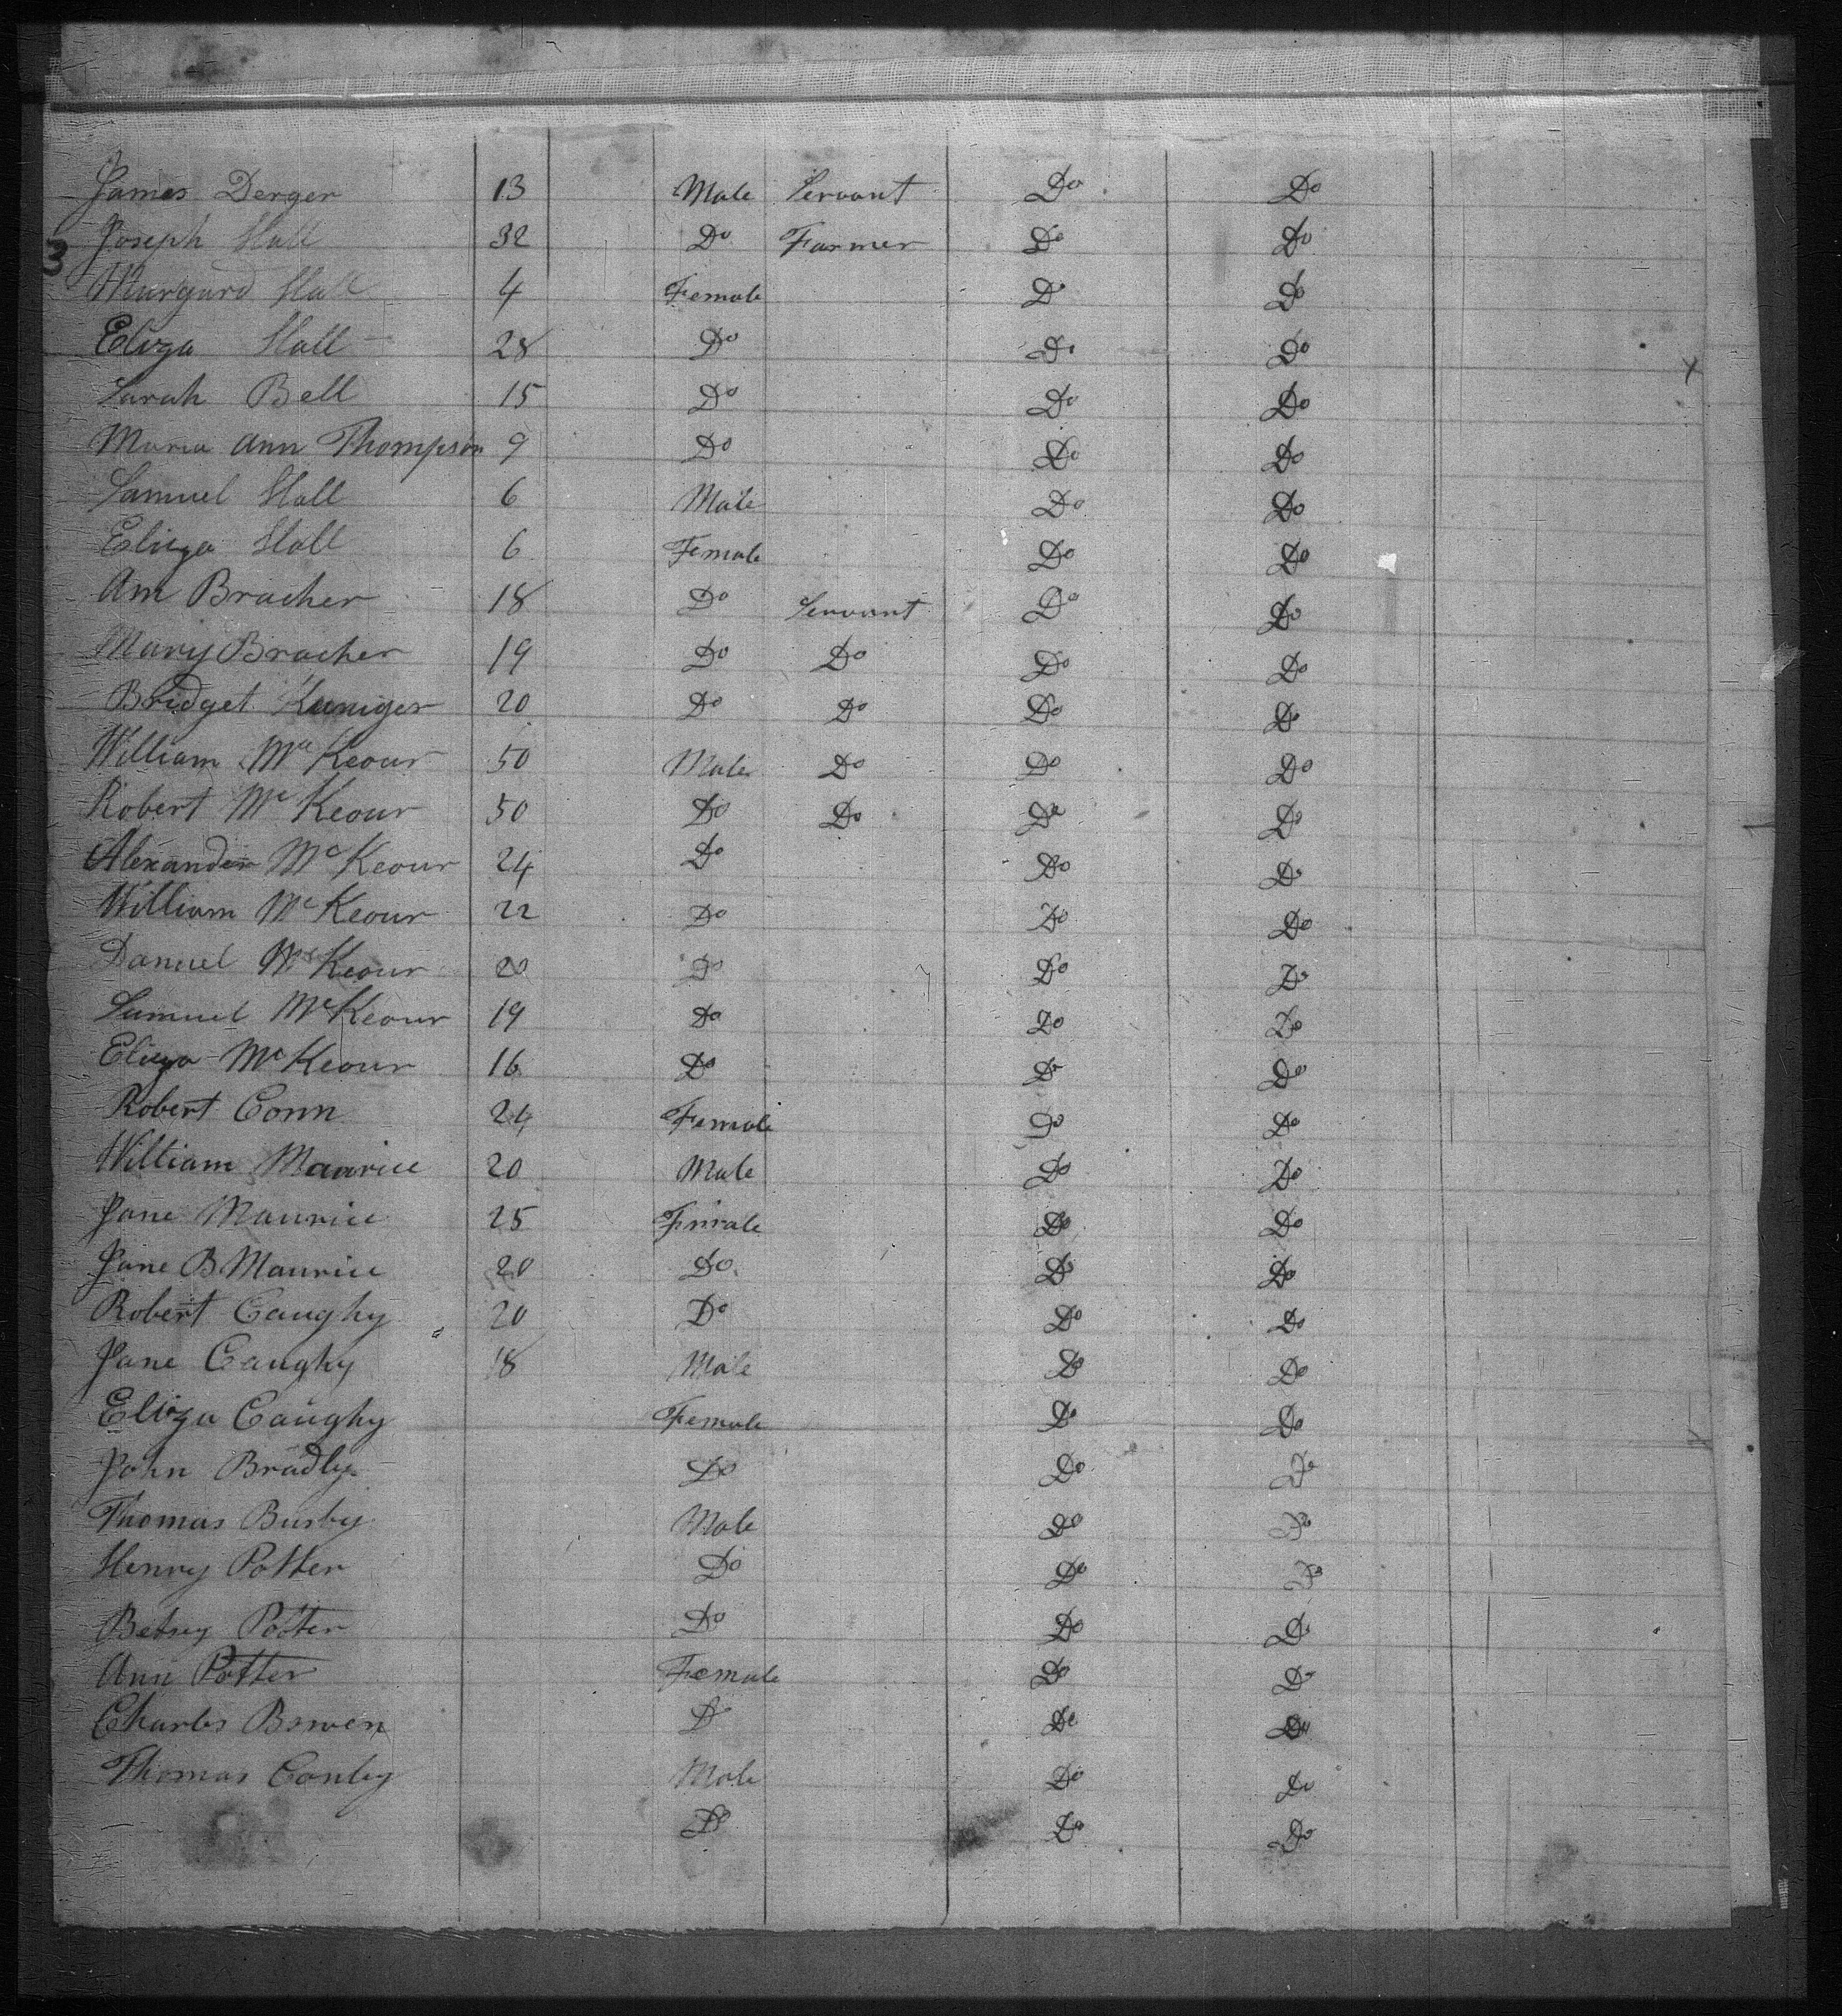 James Derger 13 Male Servant Do Do
3 Joseph Hall 32 Do Farmer Do Do
Margard Hall 4 Female Do Do
Eliza Hall 28 Do Do Do
Sarah Bell 15 Do Do Do
Maria Ann Thompson 9 Do Do Do
Samuel Hall 6 Male Do Do
Eliza Hall 6 Female Do Do
Ann Bracher 18 Do Servant Do Do
Mary Bracher 19 Do Do Do Do
Bridget 20 Do Do Do Do
William Mc Keour 50 Male Do Do Do
Robert Mc Keour 50 Do Do Do Do
Alexander Mc Keour 24 Do Do Do
William Mc Keour 22 Do Do Do
Danuel Mc Keour 20 Do Do Do
Samuel Mc Keour 19 Do Do Do
Eliza Mc Keour 16 Do Do Do
Robert Conn 24 Female Do Do
William Maurice 20 Male Do Do
Jane Maurice 25 Female Do Do
Jane B Maurice 20 Do Do Do
Robert Caughy 20 Do Do Do
Jane Caughy 18 Male Do Do
Eliza Caughy Female Do Do
John Bradly Do Do Do
Thomas Busby Male Do Do
Henry Potter Do Do Do
Betsey Potter Do Do Do
Ann Potter Female Do Do
Charles Bowen Do Do Do
Thomas Conley Male Do Do
Do Do Do